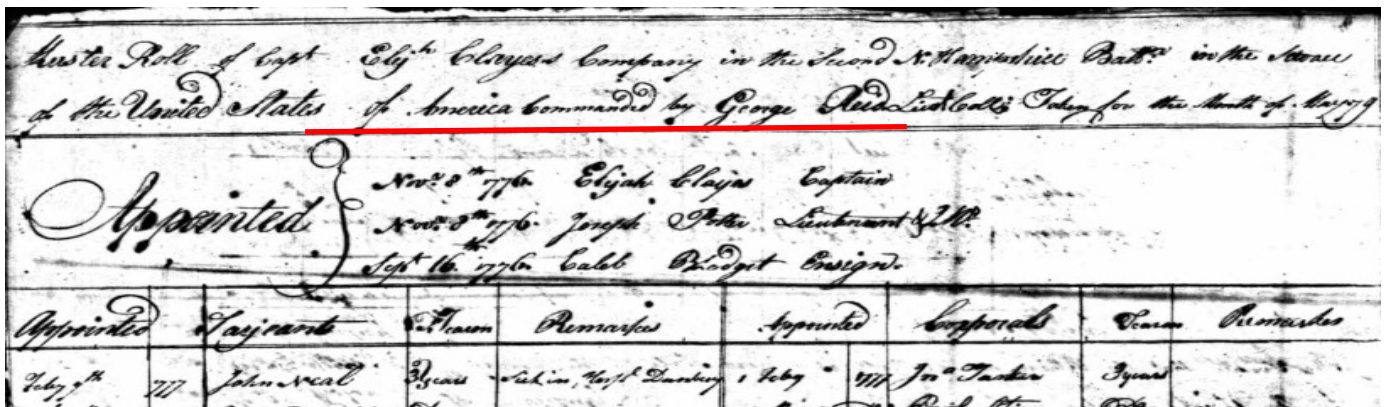 Muster Roll of Capt Elijh Clayes's Company in the Second N. Hampshire Battn in the Service
of the United States of America Commanded by George Reid Lieut. Coll. Taken for the Month of May 79
Appointed
Novr 8th 1776 Elijah Clayes Captain
Novr 8th 1776 Joseph Potter Lieutenant & Q M.
Sept 16th 1776 Caleb Blodget Ensign
Appointed Sarjeants Tearm Remarkes Appointed Corporals Tearm Remarkes
Feby 9th 777 John Neal 3 years Sick in Hospl Danbury Feby 1777 Jna 3 years